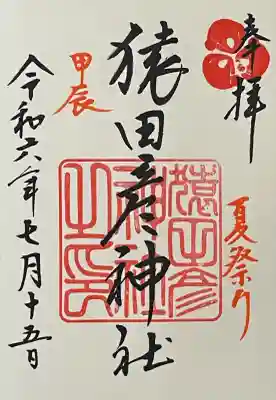 奉拝
夏祭り
猿田彦神社
猿田彦
神社
之印
甲辰
令和六年七月十五日